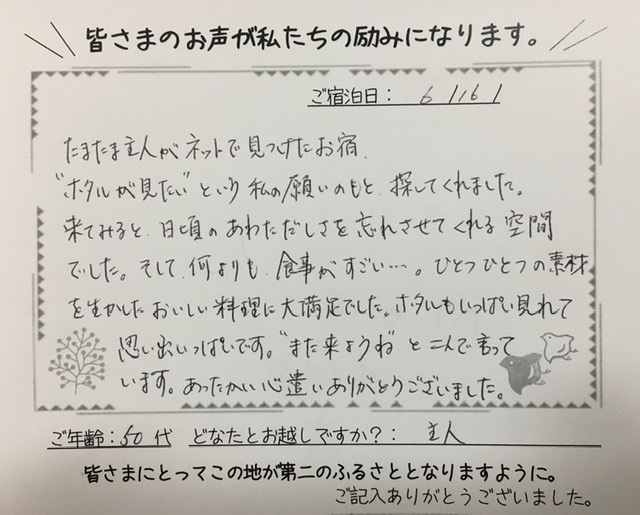 皆さまのお声が私たちの励みになります。
ご宿泊日： 6 /16 /
たまたま主人がネットで見つけたお宿、
"ホタルが見たい"という私の願いのもと、探してくれました。
来てみると、日頃のあわただしさを忘れさせてくれる空間
でした。そして、何よりも、食事がすごい…。ひとつひとつの素材
を生かしたおいしい料理に大満足でした。ホタルもいっぱい見れて
思い出いっぱいです。"また来ようね"と二人で言って
います。あったかい心遣いありがとうございました。
ご年齢：50代 どなたとお越しですか？： 主人
皆さまにとってこの地が第二のふるさととなりますように。
ご記入ありがとうございました。